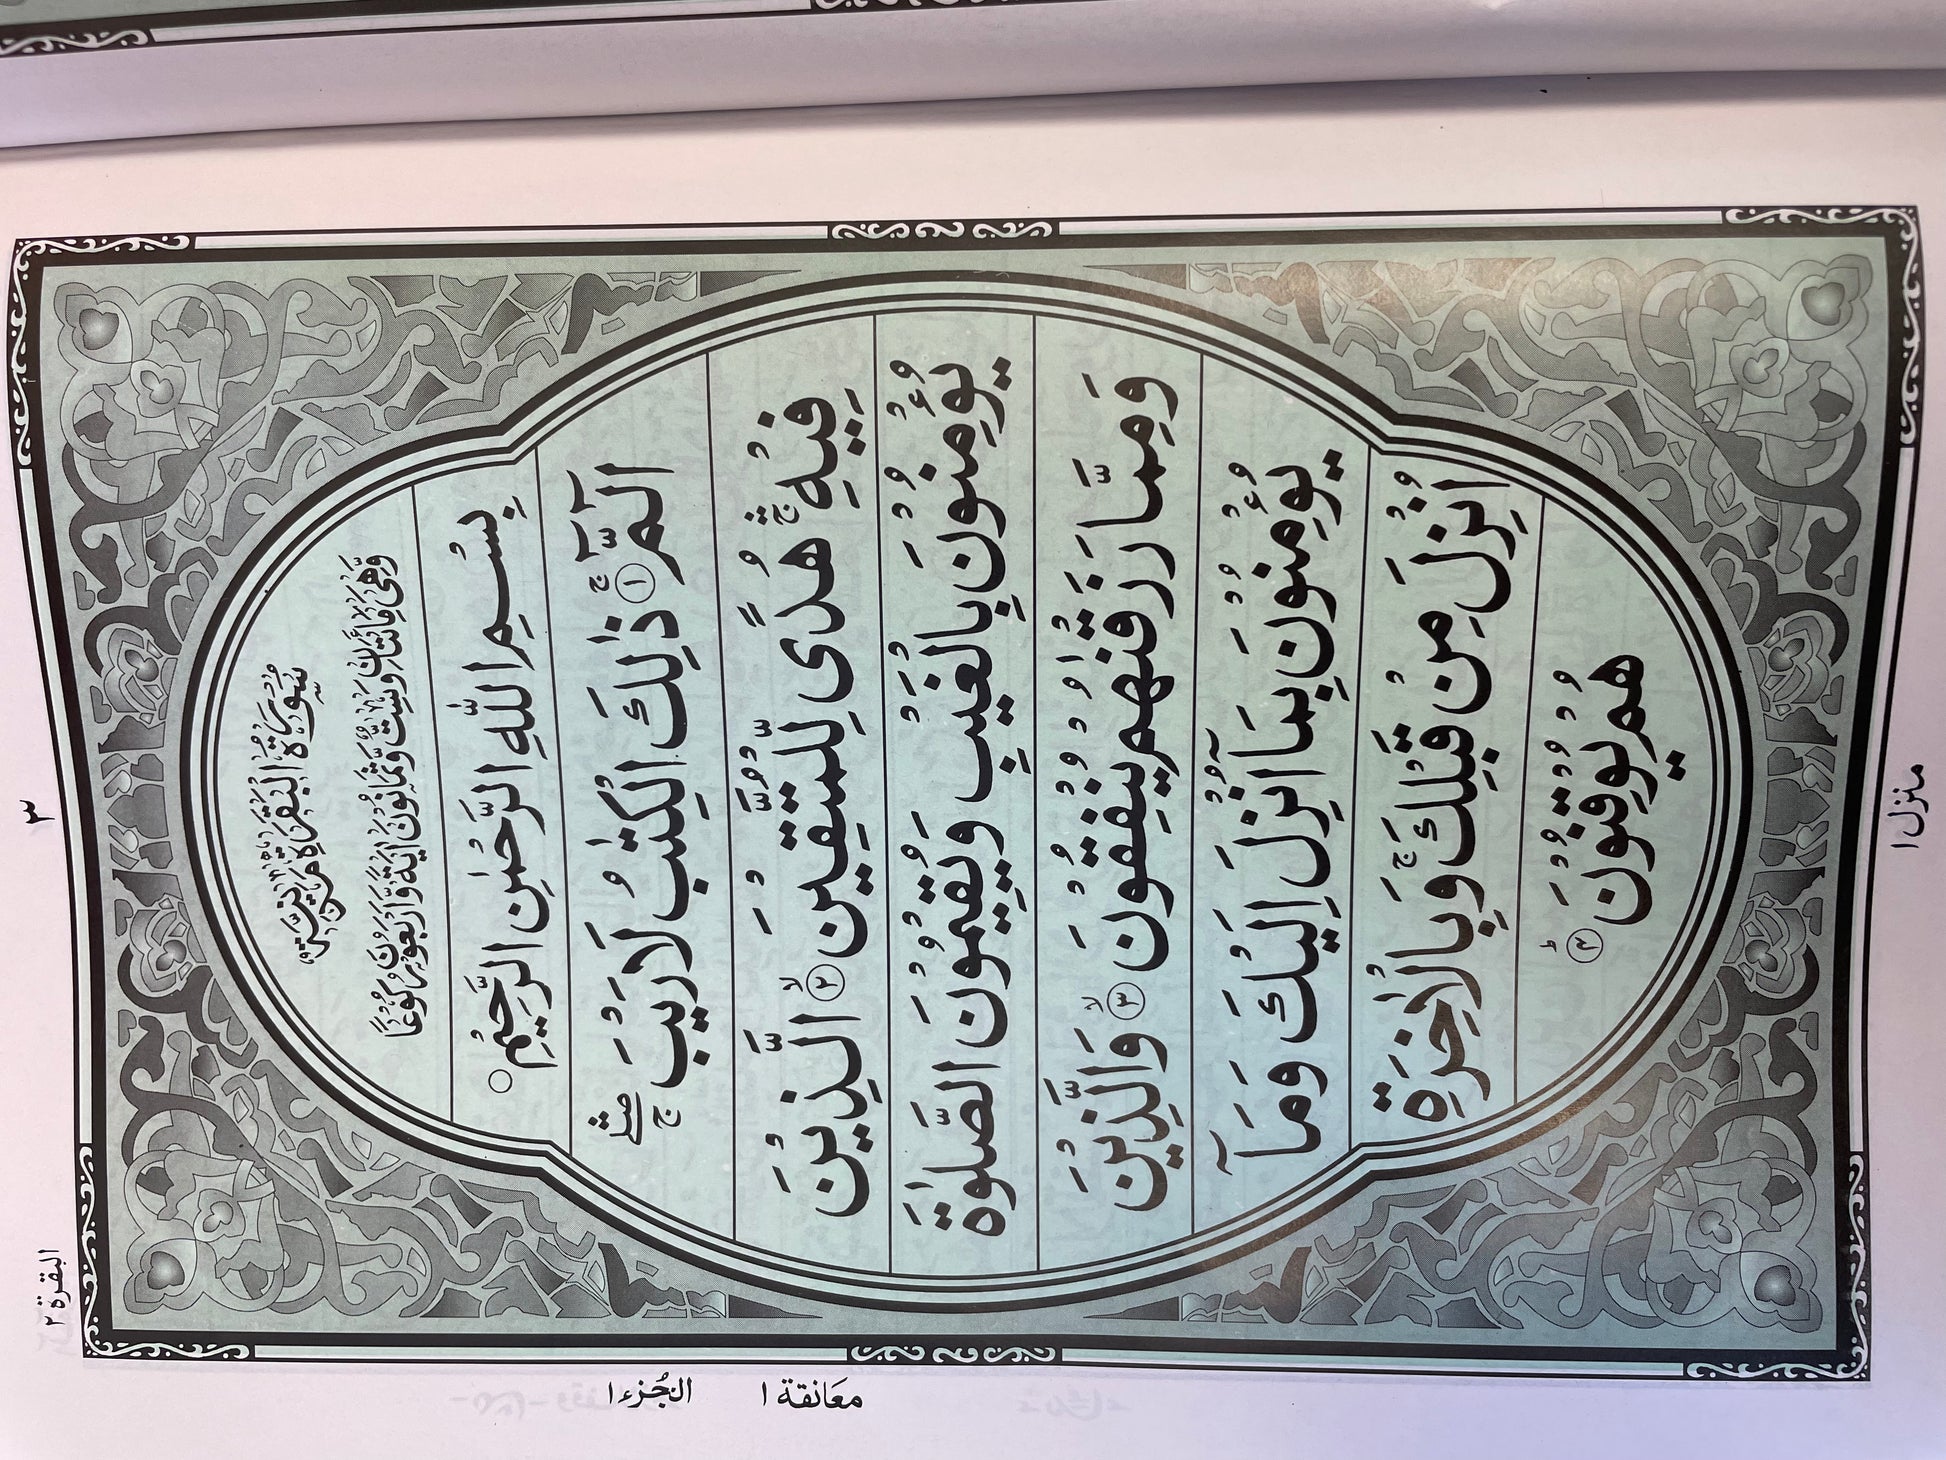 البقرة ٢
٣
سُوْرَةُ الْبَقَرَةِ مَدَنِيَّةٌ
وَّهِىَ مِائَتَانِ وَسِتٌّ وَّثَمَانُوْنَ اٰيَةً وَّاَرْبَعُوْنَ رُكُوْعًا
بِسْمِ اللّٰهِ الرَّحْمٰنِ الرَّحِيْمِ ○
الٓمّٓ ۚ ﴿١﴾ ذٰلِكَ الْكِتٰبُ لَا رَيْبَ ۛۚ
فِيْهِ ۛۚ هُدًى لِّلْمُتَّقِيْنَ ۙ ﴿٢﴾ الَّذِيْنَ
يُؤْمِنُوْنَ بِالْغَيْبِ وَيُقِيْمُوْنَ الصَّلٰوةَ
وَمِمَّا رَزَقْنٰهُمْ يُنْفِقُوْنَ ۙ ﴿٣﴾ وَالَّذِيْنَ
يُؤْمِنُوْنَ بِمَآ اُنْزِلَ اِلَيْكَ وَمَآ
اُنْزِلَ مِنْ قَبْلِكَ ۚ وَبِالْاٰخِرَةِ
هُمْ يُوْقِنُوْنَ ؕ ﴿٤﴾
الجُزء ١
معَانقة ١
منزل ١